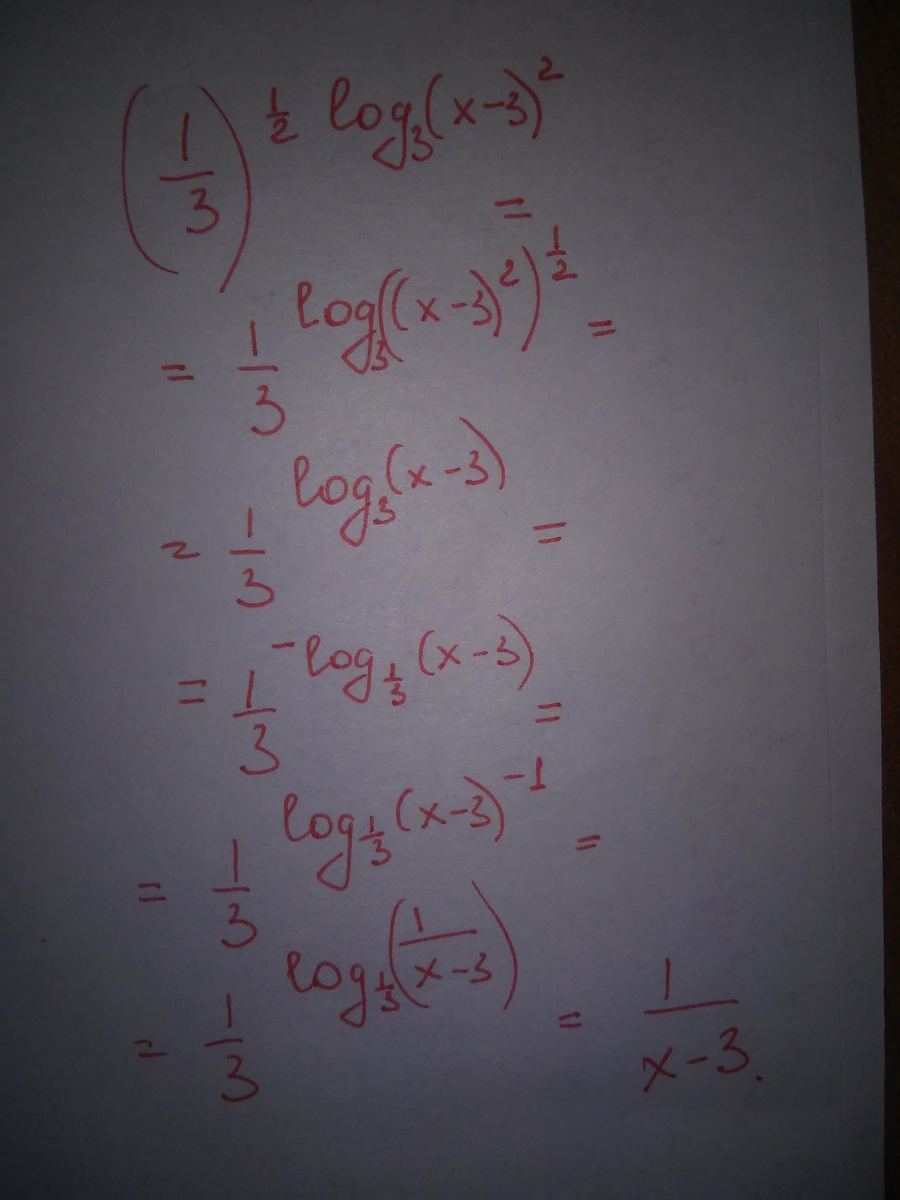 (1/3)^(1/2 log₃(x-3)²) =
= 1/3^(log₃((x-3)²)^(1/2)) =
= 1/3^(log₃(x-3)) =
= 1/3^(-log_(1/3)(x-3)) =
= 1/3^(log_(1/3)(x-3)^(-1)) =
= 1/3^(log_(1/3)(1/(x-3))) = 1/(x-3).